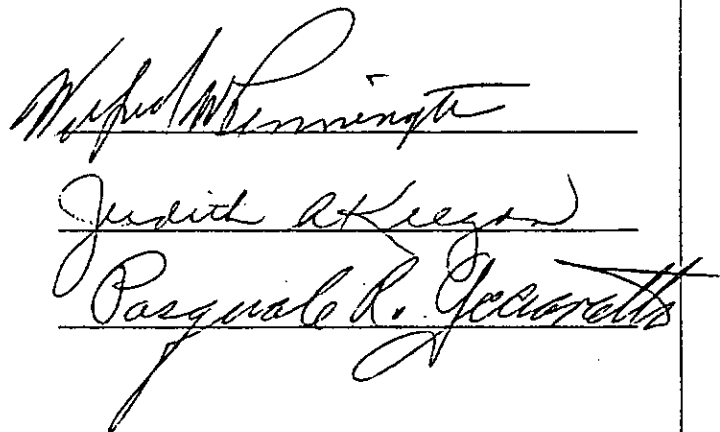 Wilfred W Pennington
Judith A Keegan
Pasquale R.